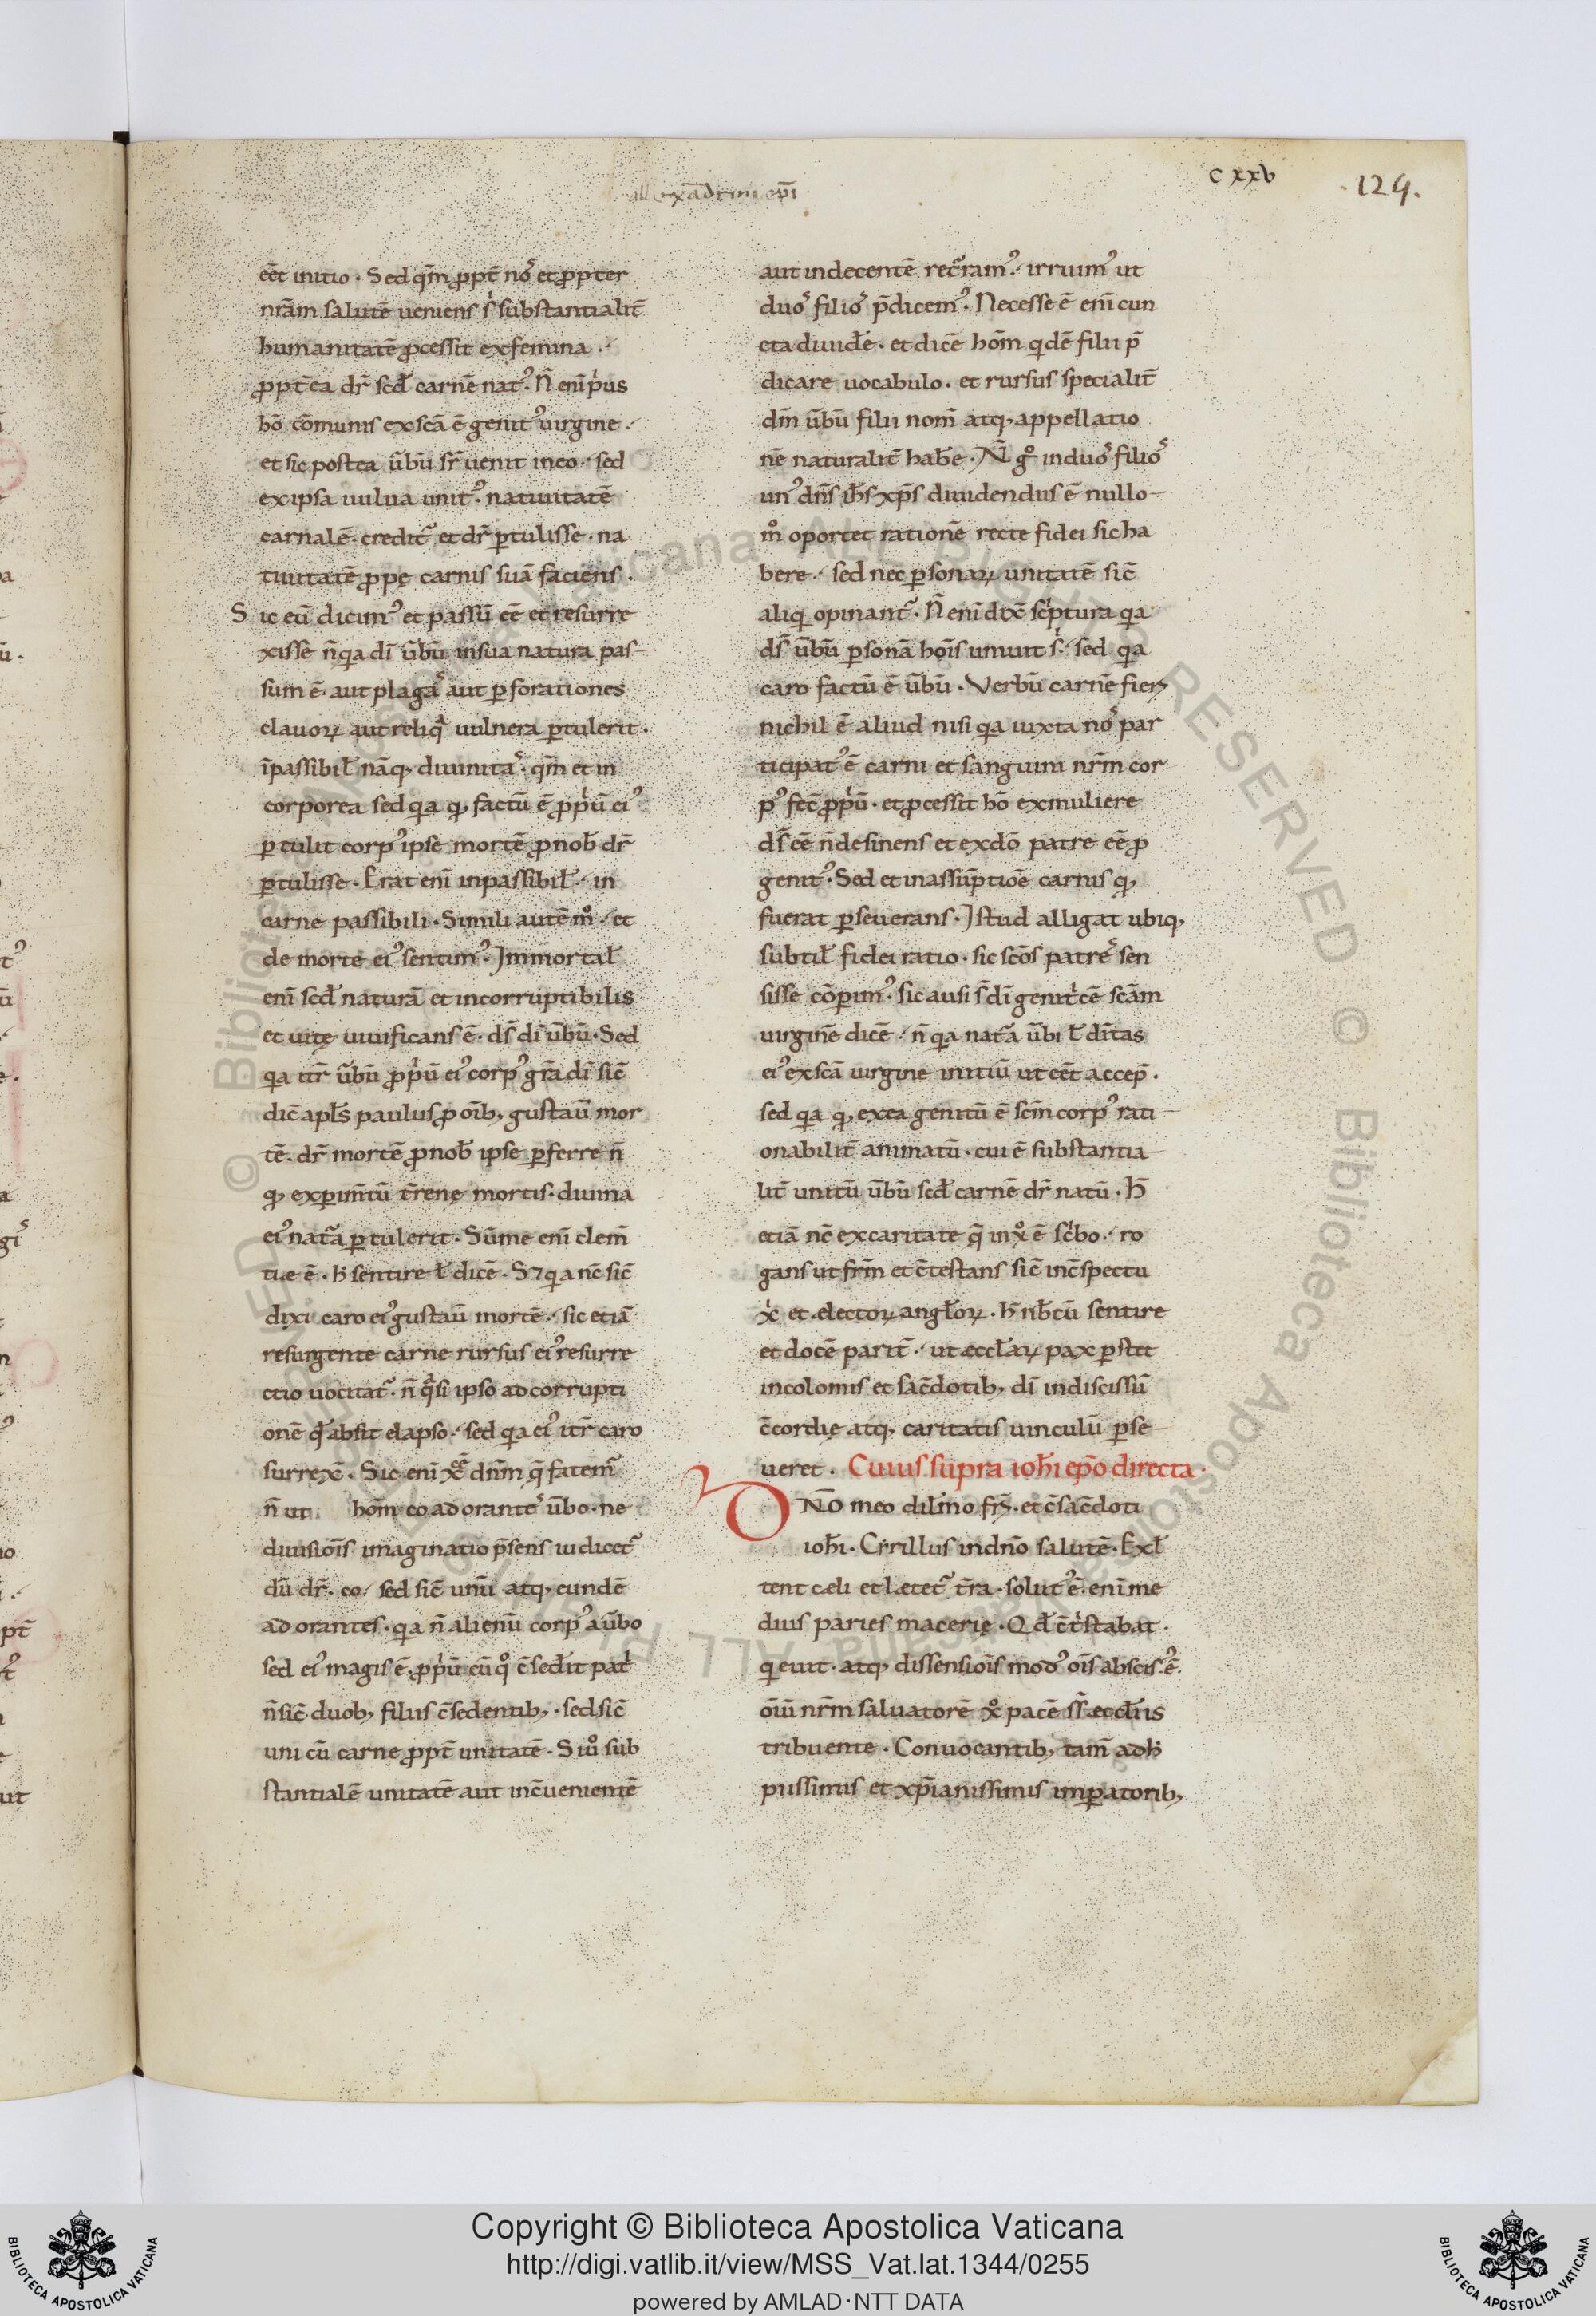 allexādrini epī
cxxv
129.
eēt initio. Sed qm̄ ppt̄ noˀ et ppter
nrām salutē ueniens sⁱ substantialit̄
humanitatē pcessit ex femina.
ppt̄ea dr̄ scd̄ carnē natꝰ. N̄ enī pⁱus
hō cōmunis ex scā ē genitꝰ uirgine.
et sic postea ūbū sr̄ uenit in eo. sed
ex ipsa uulua unitꝰ. natiuitatē
carnalē. credit̄ et dr̄ ꝑtulisse. na
tiuitatē ppę carnis suā faciens.
Sic eū dicimꝰ et passū eē et resurre
xisse n̄ qa dī ūbū in sua natura pas
sum ē. aut plagaˀ aut ꝑforationes
clauoꝝ aut reliqˀ uulnera ꝑtulerit.
īpassibil̄ nāq, diuinitaˀ. qm̄ et in
corporea sed qa q, factū ē ppⁱū eiꝰ
ꝑtulit corpꝰ ipse mortē p nob̄ dr̄
ꝑtulisse. Erat enī inpassibil̄. in
carne passibili. Simili autē mᵒ. et
de morte eiꝰ sentimꝰ. Immortal̄
enī scd̄ naturā et incorruptibilis
et uitę uiuificans ē. ds̄ dī ūbū. Sed
qa itr̄ ūbū ppⁱū eiꝰ corpꝰ grā dī sic̄
dic̄ apl̄s paulus p oīb, gustau̅ mor
tē. dr̄ mortē p nob̄ ipse ꝑferre n̄
q, exꝑim̄tū t̄renę mortis. diuina
eiꝰ nat̄a ꝑtulerit. Sūme enī clem̄
tiæ ē. h̄ sentire l̄ dicē. S⁊ qa nc̄ sic̄
dixi caro eiꝰ gustau̅ mortē. sic etiā
resurgente carne rursus eiꝰ resurre
ctio uocitat̄. n̄ qˢi ipso ad corrupti
onē qd̄ absit elapso. sed qa eiꝰ itr̄ caro
surrex̄. Sic enī dn̄m q̄ fatem̄
n̄ ut hom̄ eo adoranteˀ ūbo. ne
diuisiōis imaginatio p̄sens iudicet̄
dū dr̄. co. sed sic̄ unū atq, eundē
adorantes. qa n̄ alienū corpꝰ a ūbo
sed eiꝰ magis ē. ppⁱū cū qᵒ c̄sed̄it patⁱ
n̄ sic̄ duob, filiis c̄sedentib,. sed sic̄
uni cū carne ppt̄ unitatē. Si uᵒ sub
stantialē unitatē aut inc̄uenientē
aut indecentē rec̄ramꝰ. irruimꝰ ut
duoˀ filioˀ p̄dicemꝰ. Necesse ē enī cun
cta diuid̄e. et dicē hōm qdē filii p̄
dicare uocabulo. et rursus specialit̄
dm̄ ūbū filii nom̄ atq, appellatio
nē naturalit̄ hab̄e. N̄ gᵒ in duoˀ filioˀ
unꝰ dn̄s ih̄s xp̄s diuidendus ē nullo
mᵒ oportet rationē recte fidei sic ha
bere. sed nec ꝑsonaꝝ unitatē sic̄
aliq opinant̄. N̄ enī dix̄ scⁱptura qa
ds̄ ūbū ꝑsonā hoīs uniuit sⁱ. sed qa
caro factū ē ūbū. Verbū carnē fieꝝ
nichil ē aliud nisi qa iuxta noˀ par
ticipatꝰ ē carni et sanguini nr̄m cor
pꝰ fec̄ ppⁱū. et pcessit hō ex muliere
ds̄ eē n̄ desinens et ex dō patre eē p
genitꝰ. Sed et in assūptioē carnis q,
fuerat ꝑseuerans. Istud alligat ubiq,
subtil̄ fidei ratio. sic scōs patreˀ sen
sisse cōꝑimꝰ. sic ausi s̄ dī genitⁱcē scām
uirginē dicē. n̄ qa nat̄a ūbi l̄ dītas
eiꝰ ex scā uirgine initiū ut eēt accep̄.
sed qa q, ex ea genitū ē scm̄ corpꝰ rati
onabilit̄ animatū. cui ē substantia
lit̄ unitū ūbū scd̄ carnē dr̄ natū. h̄
etiā nc̄ ex caritate q̄ in xᵒ ē scⁱbo. ro
gans ut frm̄ et c̄testans sic̄ in c̄spectu
xⁱ et electoꝝ angl̄oꝝ. h̄ nb̄cū sentire
et docē parit̄. ut æccl̄aꝝ pax ꝑstet
incolomis et sac̄dotib, dī indiscissū
c̄cordię atq, caritatis uinculū ꝑse
ueret. Cuius supra ioh̄i ep̄o directa.
DNO meo dil̄mo fr̄i. et c̄sac̄doti
ioh̄i. Cyrillus in dn̄o salutē. Exl̄
tent cæli et lætet̄ t̄ra. solutꝰ ē. enī me
dius paries macerię. Qd̄ c̄tⁱstabat.
qeuit. atq, dissensioīs modꝰ oīs abscisꝰ ē.
oīū nr̄m saluatorē xᵒ pacē ss̄. æccl̄iis
tribuente. Conuocantib, tam̄ ad h̄
piissimis et xp̄ianissimis imꝑatorib,
Copyright © Biblioteca Apostolica Vaticana
http://digi.vatlib.it/view/MSS_Vat.lat.1344/0255
powered by AMLAD·NTT DATA